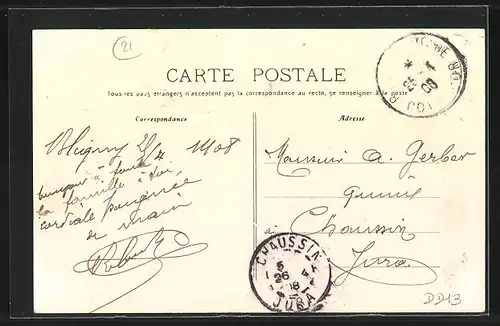 21
CARTE POSTALE
Tous les pays étrangers n'acceptent pas la correspondance au recto, se renseigner à la poste
Correspondance
Adresse
1908
bonjour à toute
la famille à toi
cordiale poignée
de main
Monsieur A. Gerber
à Chaussin
Jura
CHAUSSIN
5
26
08
JURA
DD13